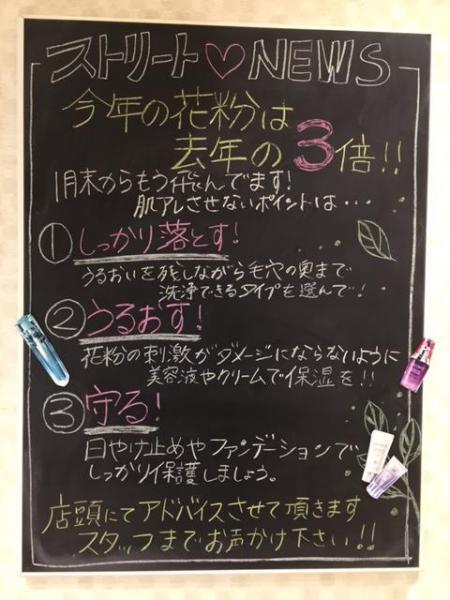 ストリート♡NEWS
今年の花粉は
去年の3倍!!
1月末からもう飛んでます!
肌アレさせないポイントは・・・
①しっかり落とす!
うるおいを残しながら毛穴の奥まで
洗浄できるタイプを選んで!
②うるおす!
花粉の刺激がダメージにならないように
美容液やクリームで保湿を!!
③守る!
日やけ止めやファンデーションで
しっかり保護しましょう。
店頭にてアドバイスさせて頂きます
スタッフまでお声かけ下さい!!